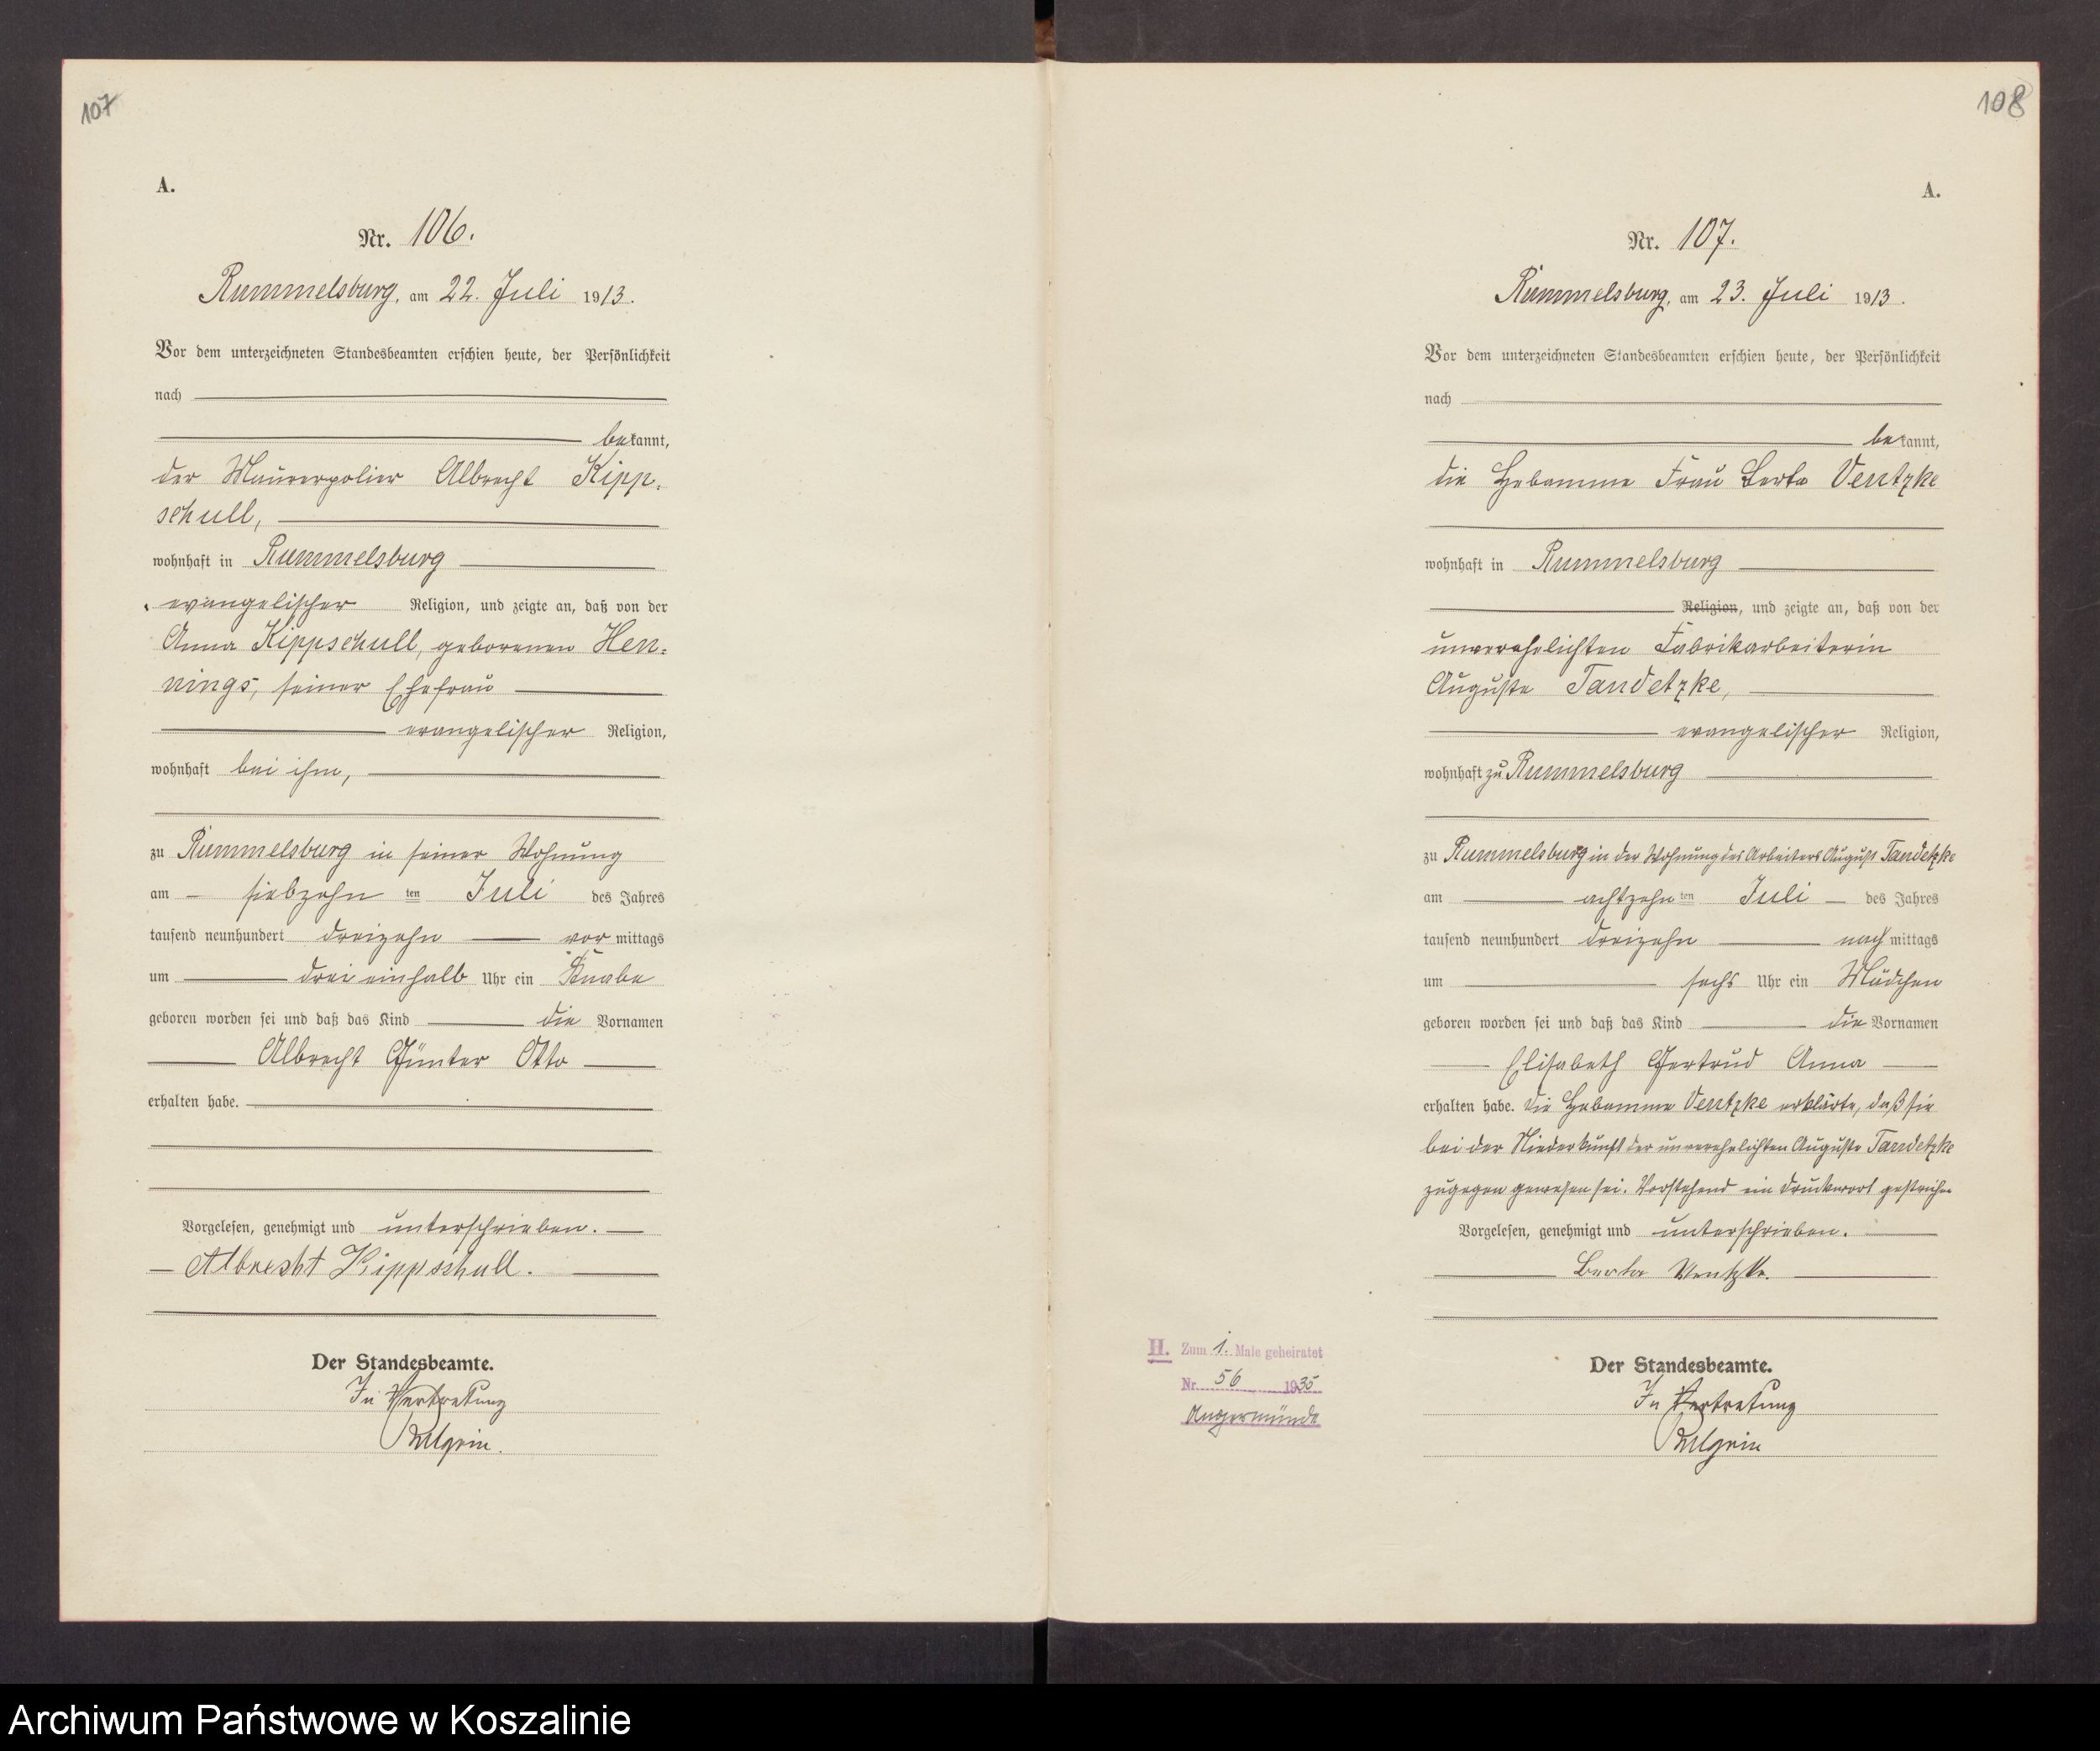 107
A.
Nr. 106.
Rummelsburg, am 22. Juli 1913.
Vor dem unterzeichneten Standesbeamten erschien heute, der Persönlichkeit
nach
bekannt,
der Maurerpolier Albrecht Kipp-
schull,
wohnhaft in Rummelsburg
evangelischer Religion, und zeigte an, daß von der
Anna Kippschull, geborenen Hen-
nings, seiner Ehefrau
evangelischer Religion,
wohnhaft bei ihm,
zu Rummelsburg in seiner Wohnung
am siebzehn ten Juli des Jahres
tausend neunhundert dreizehn vor mittags
um drei einhalb Uhr ein Knabe
geboren worden sei und daß das Kind die Vornamen
Albrecht Günter Otto
erhalten habe.
Vorgelesen, genehmigt und unterschrieben.
Albrecht Kippschull.
Der Standesbeamte.
In Vertretung
108
A.
Nr. 107.
Rummelsburg, am 23. Juli 1913.
Vor dem unterzeichneten Standesbeamten erschien heute, der Persönlichkeit
nach
bekannt,
die Hebamme Frau Berta Ventzke
wohnhaft in Rummelsburg
Religion, und zeigte an, daß von der
unverehelichten Fabrikarbeiterin
Auguste Tandetzke,
evangelischer Religion,
wohnhaft zu Rummelsburg
zu Rummelsburg in der Wohnung des Arbeiters August Tandetzke
am achtzehn ten Juli des Jahres
tausend neunhundert dreizehn nach mittags
um sechs Uhr ein Mädchen
geboren worden sei und daß das Kind die Vornamen
Elisabeth Gertrud Anna
erhalten habe. Die Hebamme Ventzke erklärte, daß sie
bei der Niederkunft der unverehelichten Auguste Tandetzke
zugegen gewesen sei. Vorstehend ein Druckwort gestrichen
Vorgelesen, genehmigt und unterschrieben.
Berta Ventzke.
Der Standesbeamte.
In Vertretung
H. Zum 1. Male geheiratet
Nr. 56 1935
Angermünde
Archiwum Państwowe w Koszalinie